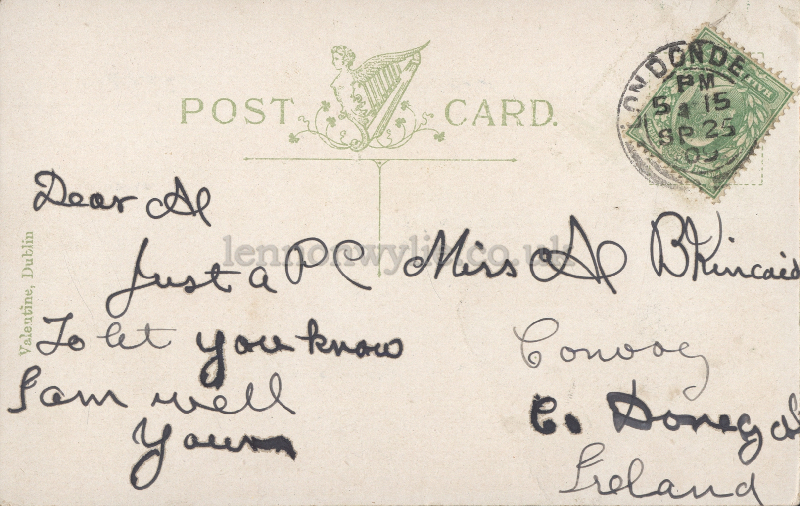 POST CARD.
LONDONDE
PM
5 15
SP 25
09
Valentine, Dublin
lennonwylie.co.uk
Dear Al
Just a PC
To let you know
I am well
Yours
Miss Al B Kincaid
Convoy
Co. Donegal
Ireland